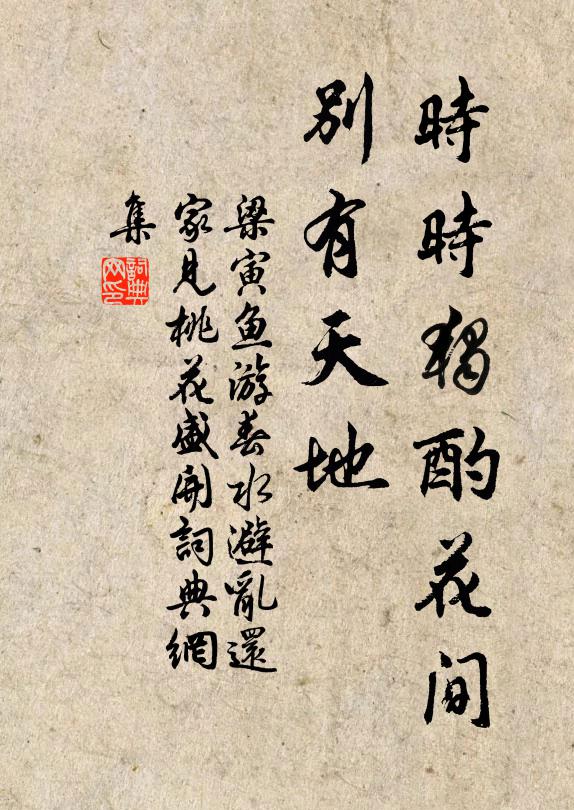 時時獨酌花間
別有天地
梁寅魚游春水避亂還
家見桃花盛開詞典網
集
詞典
网印